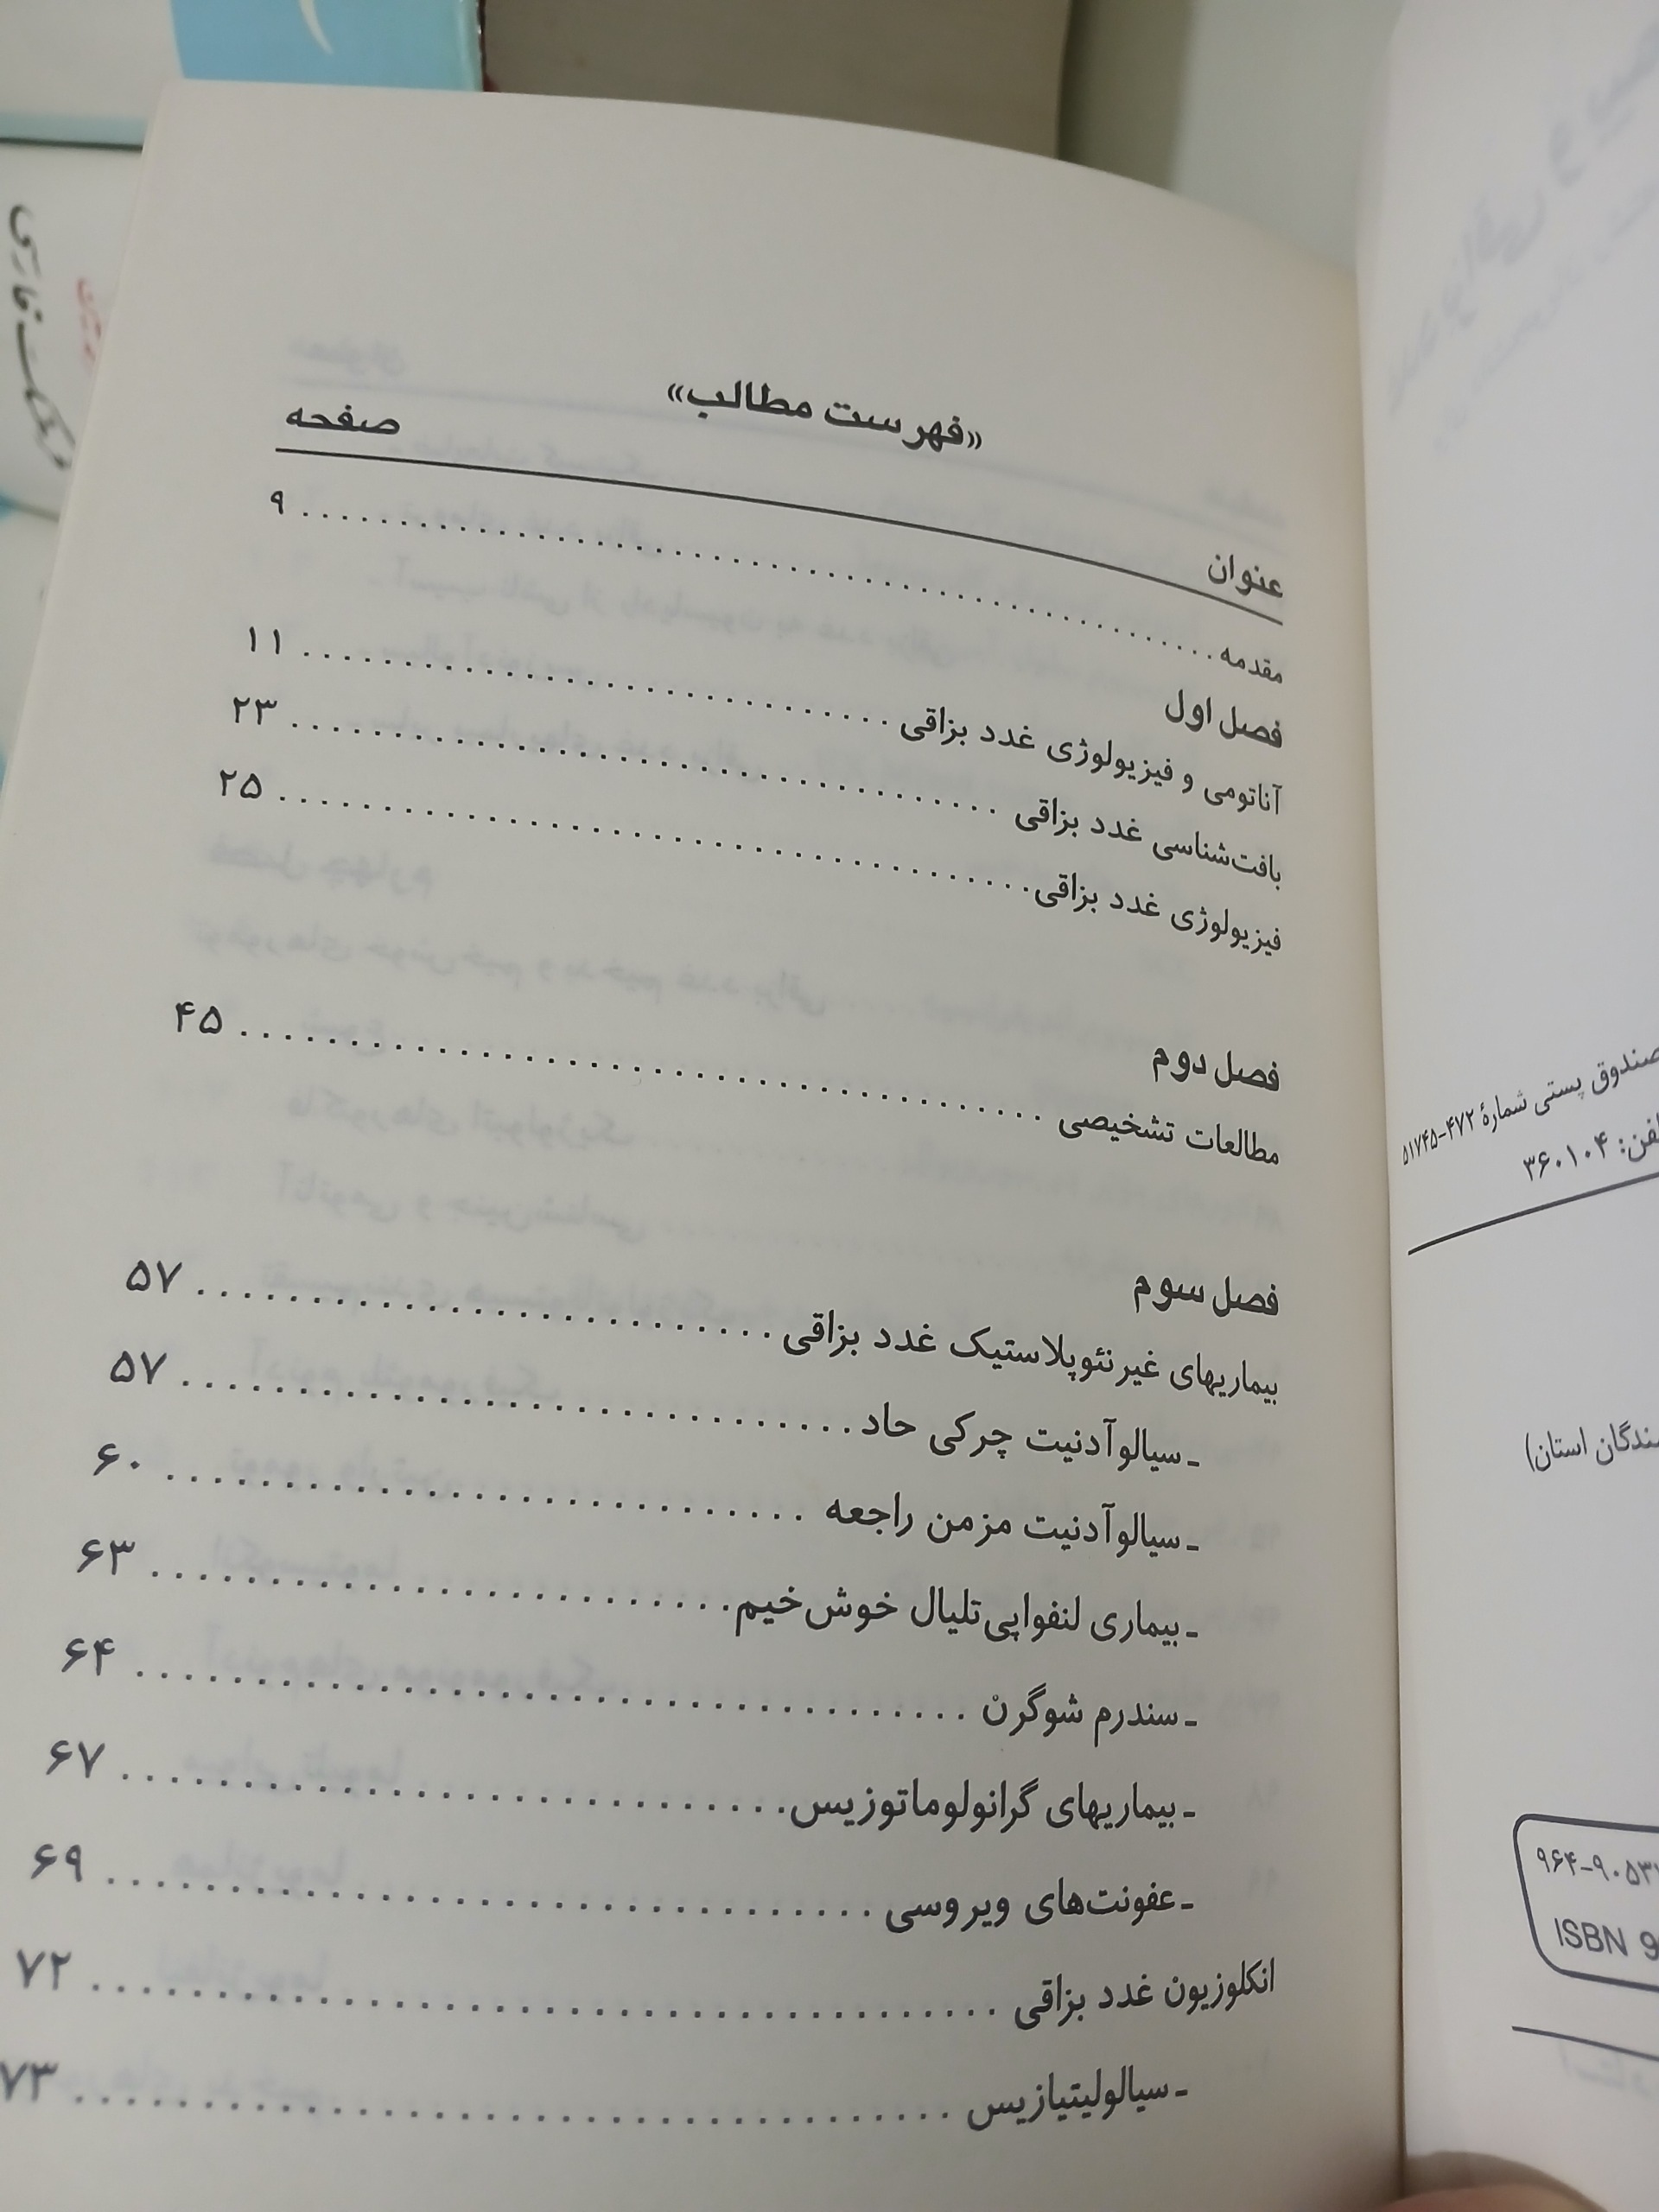 «فهرست مطالب»
عنوان صفحه
مقدمه ........ ۹
فصل اول
آناتومی و فیزیولوژی غدد بزاقی ........ ۱۱
بافت‌شناسی غدد بزاقی ........ ۲۳
فیزیولوژی غدد بزاقی ........ ۲۵
فصل دوم
مطالعات تشخیصی ........ ۴۵
فصل سوم
بیماریهای غیرنئوپلاستیک غدد بزاقی ........ ۵۷
ـ سیالوآدنیت چرکی حاد ........ ۵۷
ـ سیالوآدنیت مزمن راجعه ........ ۶۰
ـ بیماری لنفواپی‌تلیال خوش‌خیم ........ ۶۳
ـ سندرم شوگرن ........ ۶۴
ـ بیماریهای گرانولوماتوزیس ........ ۶۷
ـ عفونت‌های ویروسی ........ ۶۹
انکلوزیون غدد بزاقی ........ ۷۲
ـ سیالولیتیازیس ........ ۷۳
صندوق پستی شمارهٔ ۴۷۲-۵۱۷۴۵
۳۶۰۱۰۴
استان)
ISBN 9